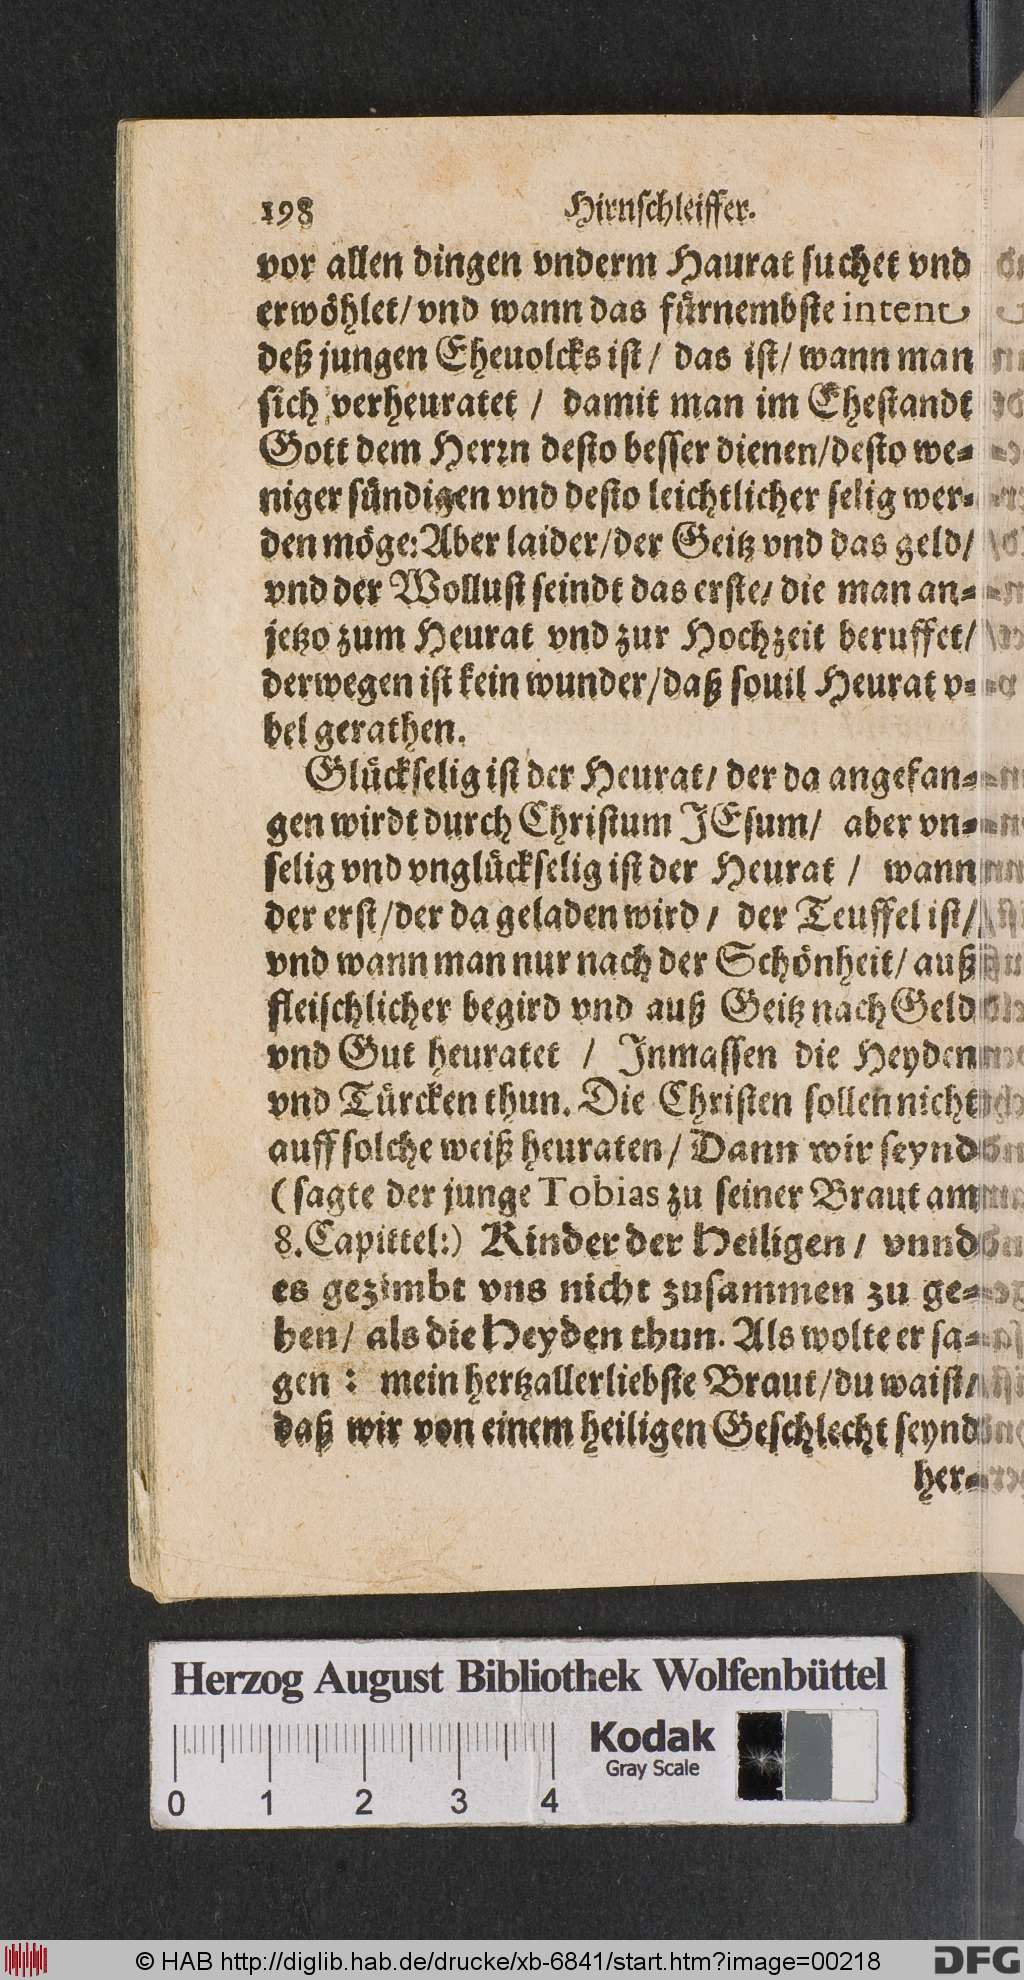 198 Hirnschleiffer.
vor allen dingen vnderm Haurat suchet vnd
erwöhlet/ vnd wann das fürnembste intent
deß jungen Eheuolcks ist/ das ist/ wann man
sich verheuratet / damit man im Ehestandt
Gott dem Herrn desto besser dienen/desto we-
niger sündigen vnd desto leichtlicher selig wer-
den möge: Aber laider/der Geitz vnd das geld/
vnd der Wollust seindt das erste/ die man an-
jetzo zum Heurat vnd zur Hochzeit beruffet/
derwegen ist kein wunder/daß souil Heurat v-
bel gerathen.
Glückselig ist der Heurat/ der da angefan-
gen wirdt durch Christum JEsum/ aber vn-
selig vnd vnglückselig ist der Heurat / wann
der erst/der da geladen wird/ der Teuffel ist/
vnd wann man nur nach der Schönheit/ auß
fleischlicher begird vnd auß Geitz nach Geld
vnd Gut heuratet / Inmassen die Heyden
vnd Türcken thun. Die Christen sollen nicht
auff solche weiß heuraten/ Dann wir seynd
(sagte der junge Tobias zu seiner Braut am
8. Capittel:) Kinder der Heiligen/ vnnd
es gezimbt vns nicht zusammen zu ge-
hen/ als die Heyden thun. Als wolte er sa-
gen : mein hertzallerliebste Braut/du waist/
daß wir von einem heiligen Geschlecht seynd
her-
Herzog August Bibliothek Wolfenbüttel
Kodak
Gray Scale
0 1 2 3 4
© HAB http://diglib.hab.de/drucke/xb-6841/start.htm?image=00218
DFG